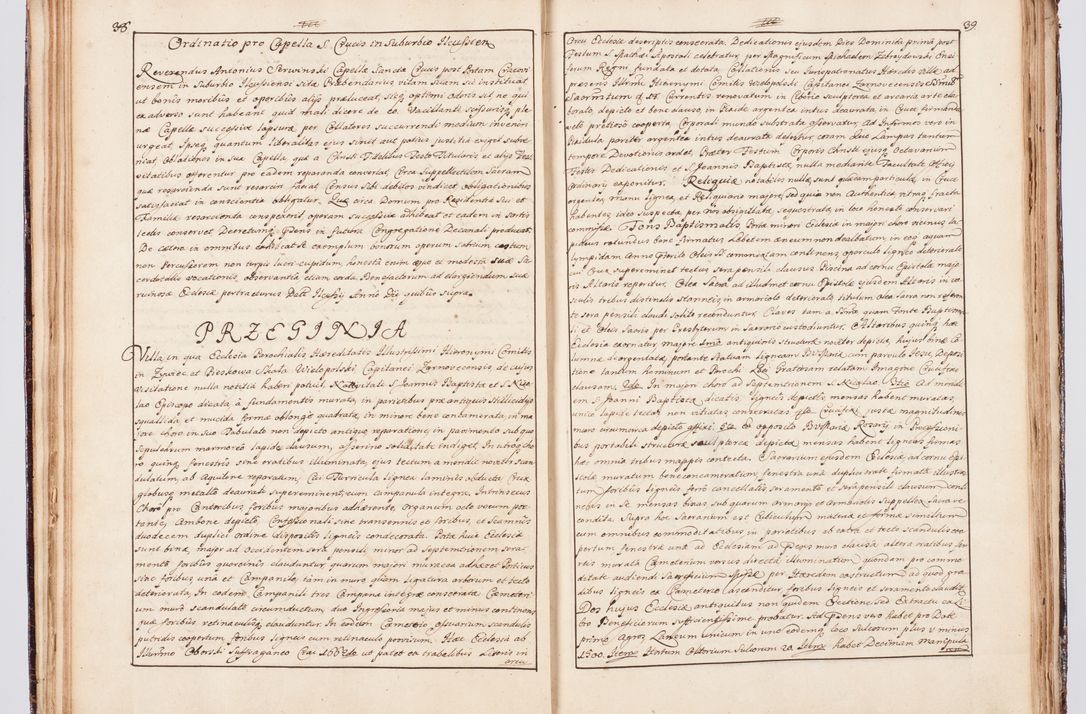 38
Ordinatio pro Capella S. Crucis in Suburbio Ilcussien
Reverendus Antonius Serwinski Capellæ Sanctæ Crucis post Portam Cracovi
ensem in Suburbio Ilcussiensi sitæ Præbendarius vitam suam sic instituat
ut bonis moribus et operibus alijs præluceat, sitq optimi odoris sit ne qui
ex adverso sunt habeant quid mali dicere de eo. Vacillanti suffosurisq ple
næ Capellæ successivæ lapsuræ per Collatores succurrendi medium invenire
urgeat Ipseq quantum liberalitas ejus sinit aut potius justitia exiget subve
niat Oblationes in sua Capella, quæ a Christi Fidelibus Festo Titularis et alijs
vitatibus offerentur pro eadem reparanda convertat, Circa Suppellectilem Sacram
quæ resarcienda sunt resarciri faciat Census Sibi debitos vindicet obligationibus
satisfaciat in conscientia obligatur. Quæ circa Domum pro Residentia sui et
Familiæ resarcienda conspexerit, operam successivam adhibeat et eadem in sartis
tectis conservet Decretumq Præsens in futura Congregatione Decanali producat.
De cætero in omnibus exhibeat se exemplum bonorum operum sobrium castum
non Percussorem non turpis lucri cupidum, honesta enim atque et modesta suæ Sa
cerdotalis vocationis observantia etiam corda Benefactorum ad elargiendum suæ
ruinosæ Ecclesiæ pertracturus Datt Ilcussij Anno Die quibus supra.
PRZEGINIA
Villa, in qua Ecclesia Parochialis Hæreditatis Illustrissimi Hieronymi Comitis
in Zywiec et Pieskowa Skała Wielopolski Capitanei Zarnovecensis de cujus
Visitatione nulla notitia haberi potuit, Nativitati S. Joannis Baptistæ et S. Nico
lao Episcopo dicata, à fundamentis murata, in parietibus præ antiquis stillicidijs
squallida et mucida formæ oblongo quadratæ, in minore bene concamerata, in ma
iore choro in suo Tabulato non depicto antiquo reparatione, in pavimento sub quo
Sepulchrum marmoreo lapide clausum, asserino soliditate indiget. In utroq cho
ro quinq fenestris sine cratibus illuminata, ejus tectum a meridie noviter scan
dulatum, ab Aquilone reparatum, Cui Turricula lignea laminis obducta Crux
globusq metallo deaurati supereminent, cum campanula integra. Intrinsecus
Chorus pro Cantoribus foribus majoribus adhærente Organum octo vocum por
tande, Ambone depicto, Confessionali sine transennis et foribus, et Scamnis
duodecim duplici ordine dispositis ligneis condecorata. Portæ huic Ecclesiæ
sunt binæ, major ad Occidentem sera pensili minor ad Septemtrionem sera
mento foribus quercinis clauduntur quarum majori muracea adhæret Porticus
sine foribus una et Campanile, tam in muro quam ligatura arborum et tecto
deteriorata, In eodem Campanili tres Campanæ integræ consecratæ. Cæmeteri
um muro scandulato circumductum duo Ingressoria majus et minus continens
quæ foribus retinaculisq clauduntur. In eodem Cæmeterio ossuarium scandulis
putridis coopertum foribus ligneis cum retinaculo pervium. Hæc Ecclesia ab
Illustrissimo Oborski Suffraganeo Crac. ut patet ex trabalibus Literis in
arcu
39
Arcu Ecclesiæ descriptis consecrata. Dedicationis ejusdem Dies Dominica prima post
Festum S. Mathæi Apostoli celebratur, per Magnificum Michaelem Zebrzydowski Ensi
ferum Regni fundata et dotata Collationis seu Jurispatronatus Hæredis Villæ ad
præsens Illustrissimi Hieronymi Comitis Wielopolski Capitanei Zarnovecensis.
Sacramentum q st Currentes renovatum in Ciborio sculptorea et arcuaria arte ela
borato, depicto et bene clauso in Pixide argentea intus deaurata in Cruce firmanda
velo pretioso cooperta, Corporali mundo substrata asservatur. Ad Infirmos vero in
Pixidula pariter argentea intus deaurata defertur, coram Quo Lampas tantum
tempore Devotionis ardet, Præter Festum Corporis Christi ejusq Octavarum
Festis Dedicationis et S. Joannis Baptistæ nulla mediante Facultate Officij
Ordinarij exponitur. Reliquiæ notabiles nullæ, sunt quædam particulæ in Cruce
argentea, manu lignea, et Reliquiario majore, sed quia non Authenticæ vitraq fracta
habentes ideo suspectæ, per nos obsigillatæ sequestratæ in loco honesto conservari
commissæ. Fons Baptismalis Portæ minori Ecclesiæ in majori choro vicinus, la
pideus rotundus bene firmatus Lebetem æneum non dealbatum in eoq aquam
lympidam. Anno fluente Oleo S. communicatam continens, operculo ligneo deteriorati
cui Crux supereminet tectus sera pensili clausus. Piscina ad cornu Epistolæ majo
ris Altaris reperitur. Olea Sacra ad illud met cornu Epistolæ ejusdem Altaris in va
sculis tribus distinctis stanneis, in armariolo deteriorato, titulum Olea Sacra non referen
te sera pensili claudi solito reconduntur. Claves tam a fonte quam Fonte Baptisma
li et Oleis Sacris per Presbyterum in Sacrario custodiuntur. Altaribus quinq hæc
Ecclesia exornatur majore antiquioris structuræ noviter depicto, hujus binæ co
lumnæ deargentatæ, portante statuam ligneam Beatissimæ cum parvulo Jesu, Depos
tione tantum hominum et Parochi Gratiosam relatam Imagine Crucifixi
clausam, In majori choro ad Septemtrionem S. Nicolao. Ad meridi
em S. Joanni Baptistæ dicatis, ligneis depictis mensas habent muratas,
unico lapide tectas non vitiatas consecratas Crucifixi juxta magnitudinem
muro circumcirca depicto affixi ex opposito Beatissimæ Rosarij in Processioni
bus portabili structura sculptorea depictæ mensas habent ligneas firmas
hæc omnia tribus mappis contecta. Sacrarium ejusdem Ecclesiæ ad cornu Epi
stolæ muratum bene concameratum, fenestra una duplici crate firmata illustra
tum foribus ligneis ferro cancellatis seramento et sera pensili clausum conti
nens in se mensas binas sub quarum armarijs et armariolis Suppellex sacra re
condita. Supra hoc Sacrarium est Cubiculum materiæ et formæ similium
cum omnibus commoditatibus in parietibus ab extra et tecto scandulis coo
pertum fenestræ una ad Ecclesiam ad præsens muro clausa altera cratibus fer
reis morata Cæmeterium versus directa illuminatum quondam pro commo
ditate audiendi Sacrificium Missæ per Hæredem extructum ad quod gra
dibus ligneis ex Cæmeterio l'ascenditur foribus ligneis et seramento clauditur.
Dos hujus Ecclesiæ antiquitus non quidem Erectione, sed Extractu ex Li
bro Beneficiorum sufficientissime probatur. Sed Præsens vero habet pro Dote
primo Agros Laneum unicum in uno eodemq loco Sulcorum plus v minus
1300. Item Hortum Olitorium Sulcorum 20. Item habet Decimam Manipula
rem